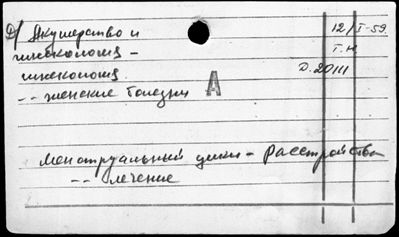 D/ Акушерство и
гинекология –
гинекология
-- женские болезни
А
12/I-59.
Т.н
D. 20111
Менструальный цикл – Расстройства
-- лечение